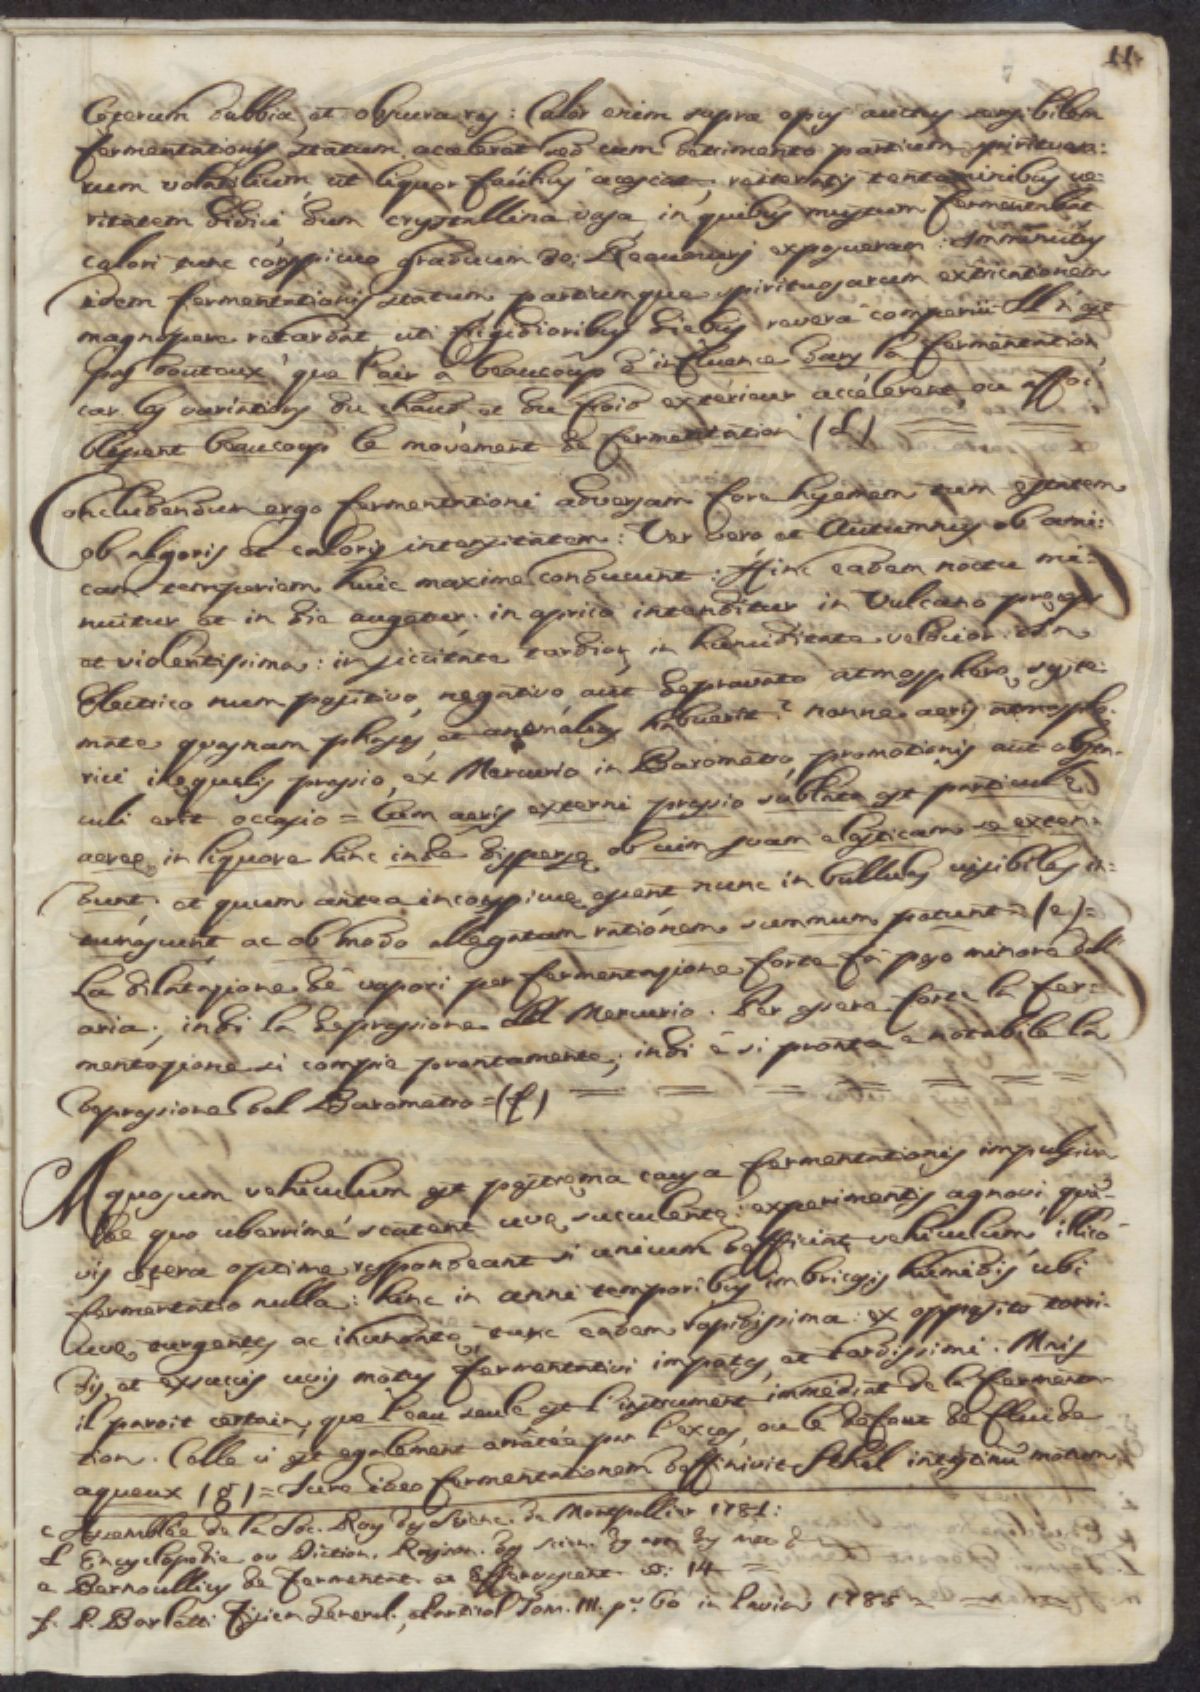 11.
Ceterum dubbia, et obscura res: Calor enim supra opus auctus sensibilem
fermentationis statum accelerat sed cum detrimento partium spirituosa:
rum volatilium, ut liquor facilius acescat; reiteratis tentaminibus ve:
ritatem didici dum crystallina vasa, in quibus mustum fermentabat
calori tunc conspicuo graduum 30: Reaumuris exposueram: Imminutus
idem fermentationis statum partiumque spirituosarum extricationem
magnopere retardat, uti frigidioribus diebus revera comperii Il n'est
pas douteux que l'air a beaucoup d'influence dans la fermentation
car les variations du chaud et du froid extérieur accélerent, ou affoi
blissent beaucoup le mouvement de fermentation (d)
Concludendum ergo fermentationi adversam fore hyemem tum estatem
ob algoris et caloris intensitatem: Ver vero et Autumnus ob ami:
cam temperiem huic maxime conducunt: Hinc eadem noctu mi:
nuitur et in die augetur: in aprico intenditur in Vulcano
et violentissima: in siccitate tardior, in humiditate velocior:
Electrico num positivo, negativo aut depravato atmosphero syste:
mate quasnam phases, et anomalias habuerit? nonne aeris atmosphe:
rici inequalis pressio, ex Mercurio in Barometro, promotionis aut obsta:
culi erit occasio = Cum aeris externi pressio sublata est particule
aeree in liquore hinc inde disperse ob vim suam elasticam se exten:
dunt, et quum antea inconspicue essent nunc in bullulas visibiles in:
tumescunt, ac ob modo allegatam rationem summum petunt = (e) =
La dilatazione de vapori per fermentazione forte fa peso minore dell'
aria; indi la depressione del Mercurio. Per essere forte la fer=
mentazione si compie prontamente; indi è si pronta e notabile la
depressione del Barometro = (f)
Aquosum vehiculum est postrema causa fermentationis impulsiva
de quo uberrime scatent uve succulente: experimentis agnovi, qua:
vis cetera optime respondeant si unicum defficiat vehiculum, illico
fermentatio nulla: hinc in anni temporibus imbricosis humidis ubi
uve turgentes ac inundate, tunc eadem rapidissima: ex opposito torri:
dis, et exsuccis uvis motus fermentativi impotes, et tardissimi. Mais
il paroit certain, que l'eau seule est l'instrument immédiat de la fermenta:
tion. Celle ci est egalement arrêtée par l'exces, ou le defaut de fluide
aqueux (g) = Jure ideo fermentationem deffinivit Sthal intestinum motum
c Assemblée de la Soc. Roy. des Scienc. de Montpellier 1781:
d Encyclopedie ou Diction. Raison. des scien. des arts des met.
e Bernoullius de fermentat. et Effervescent. 14
f. P. Barletti Fisica General. e Partical Tom. III. p. 60 in Pavia 1785